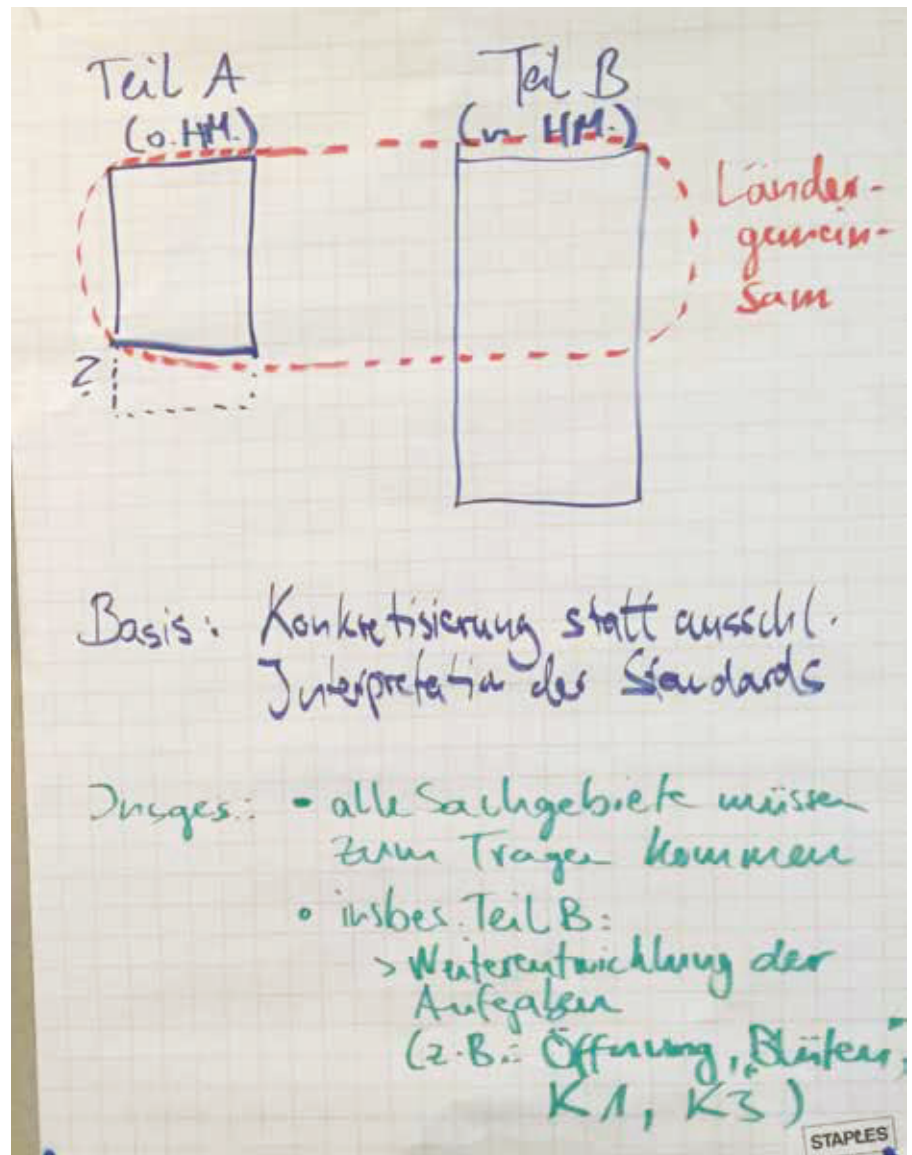 Teil A
(o. HM.)
Teil B
(m HM.)
Länder-
gemein-
sam
?
Basis: Konkretisierung statt ausschl.
Interpretation der Standards
Insges.: • alle Sachgebiete müssen
zum Tragen kommen
• insbes. Teil B:
> Weiterentwicklung der
Aufgaben
(z.B.: Öffnung, „Blüten“,
K1, K3)
STAPLES